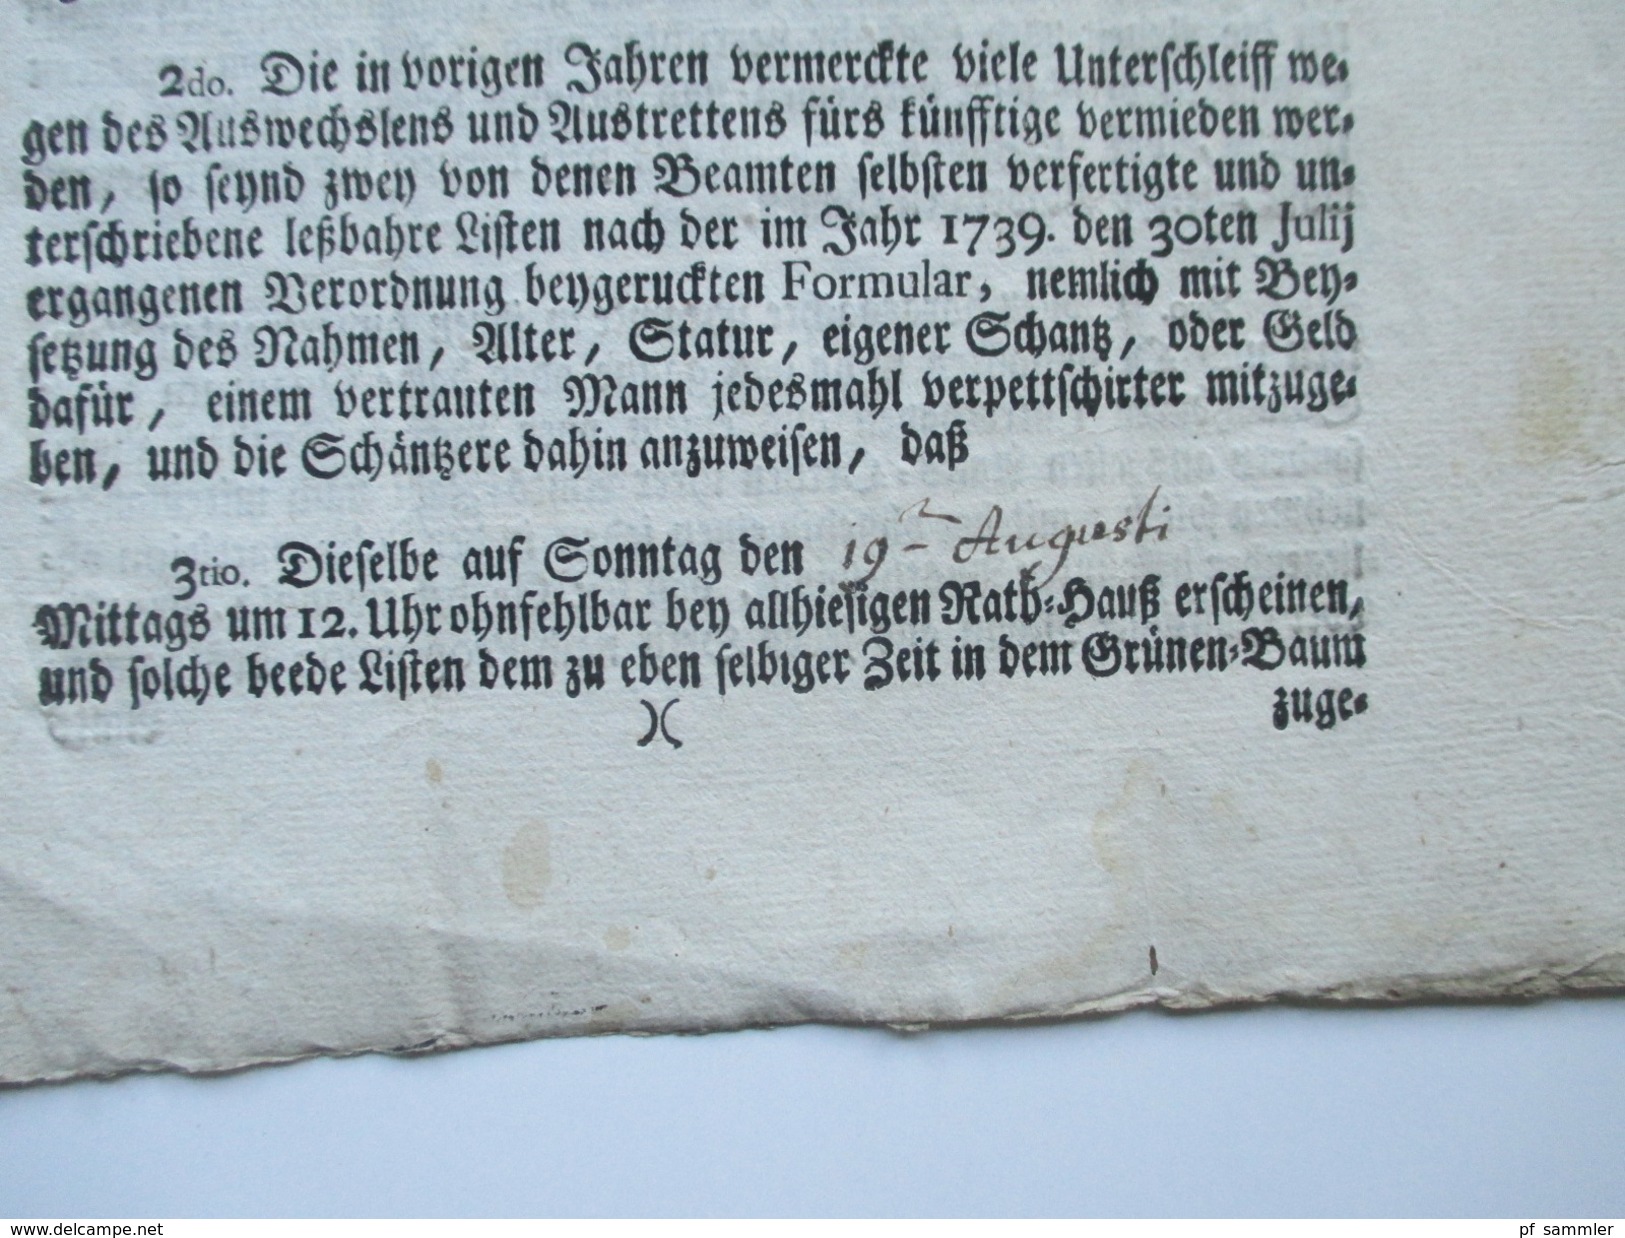 2do. Die in vorigen Jahren vermerckte viele Unterschleiff we-
gen des Auswechslens und Austrettens fürs künfftige vermieden wer-
den, so seynd zwey von denen Beamten selbsten verfertigte und un-
terschriebene leßbahre Listen nach der im Jahr 1739. den 30ten Julij
ergangenen Verordnung beygeruckten Formular, nemlich mit Bey-
setzung des Nahmen, Alter, Statur, eigener Schantz, oder Geld
dafür, einem vertrauten Mann jedesmahl verpettschirter mitzuge-
ben, und die Schäntzere dahin anzuweisen, daß
3tio. Dieselbe auf Sonntag den 19 Augusti
Mittags um 12. Uhr ohnfehlbar bey allhiesigen Rath-Hauß erscheinen,
und solche beede Listen dem zu eben selbiger Zeit in dem Grünen-Baum
)( zuge-
www.delcampe.net
pf_sammler